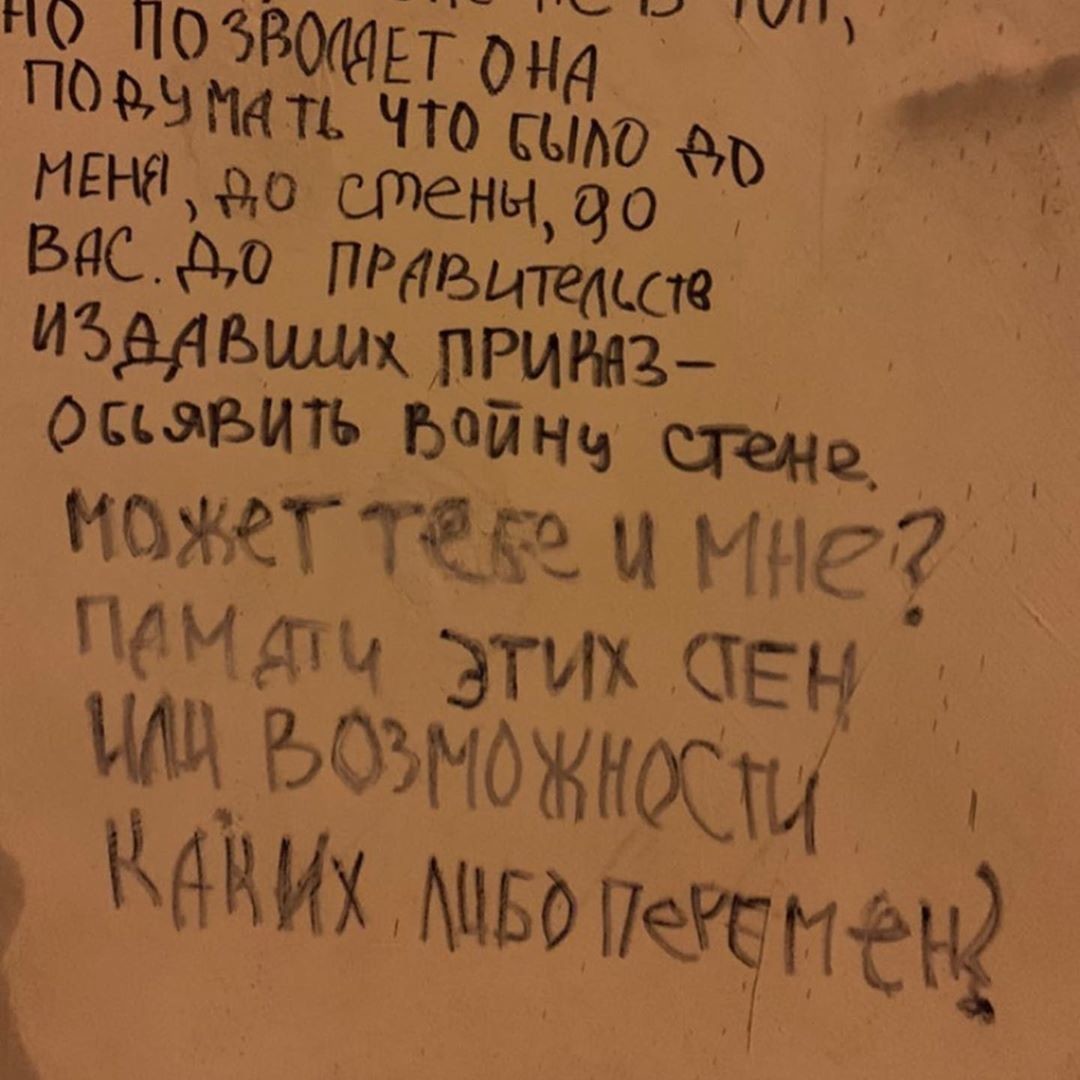 НО ПОЗВОЛЯЕТ ОНА
ПОДУМАТЬ ЧТО БЫЛО ДО
МЕНЯ, ДО СТЕНЫ, ДО
ВАС. ДО ПРАВИТЕЛЬСТВ
ИЗДАВШИХ ПРИКАЗ—
ОБЬЯВИТЬ ВОЙНУ СТЕНЕ.
МОЖЕТ ТЕБЕ И МНЕ?
ПАМЯТИ ЭТИХ СТЕН
ИЛИ ВОЗМОЖНОСТИ
КАКИХ ЛИБО ПЕРЕМЕН?